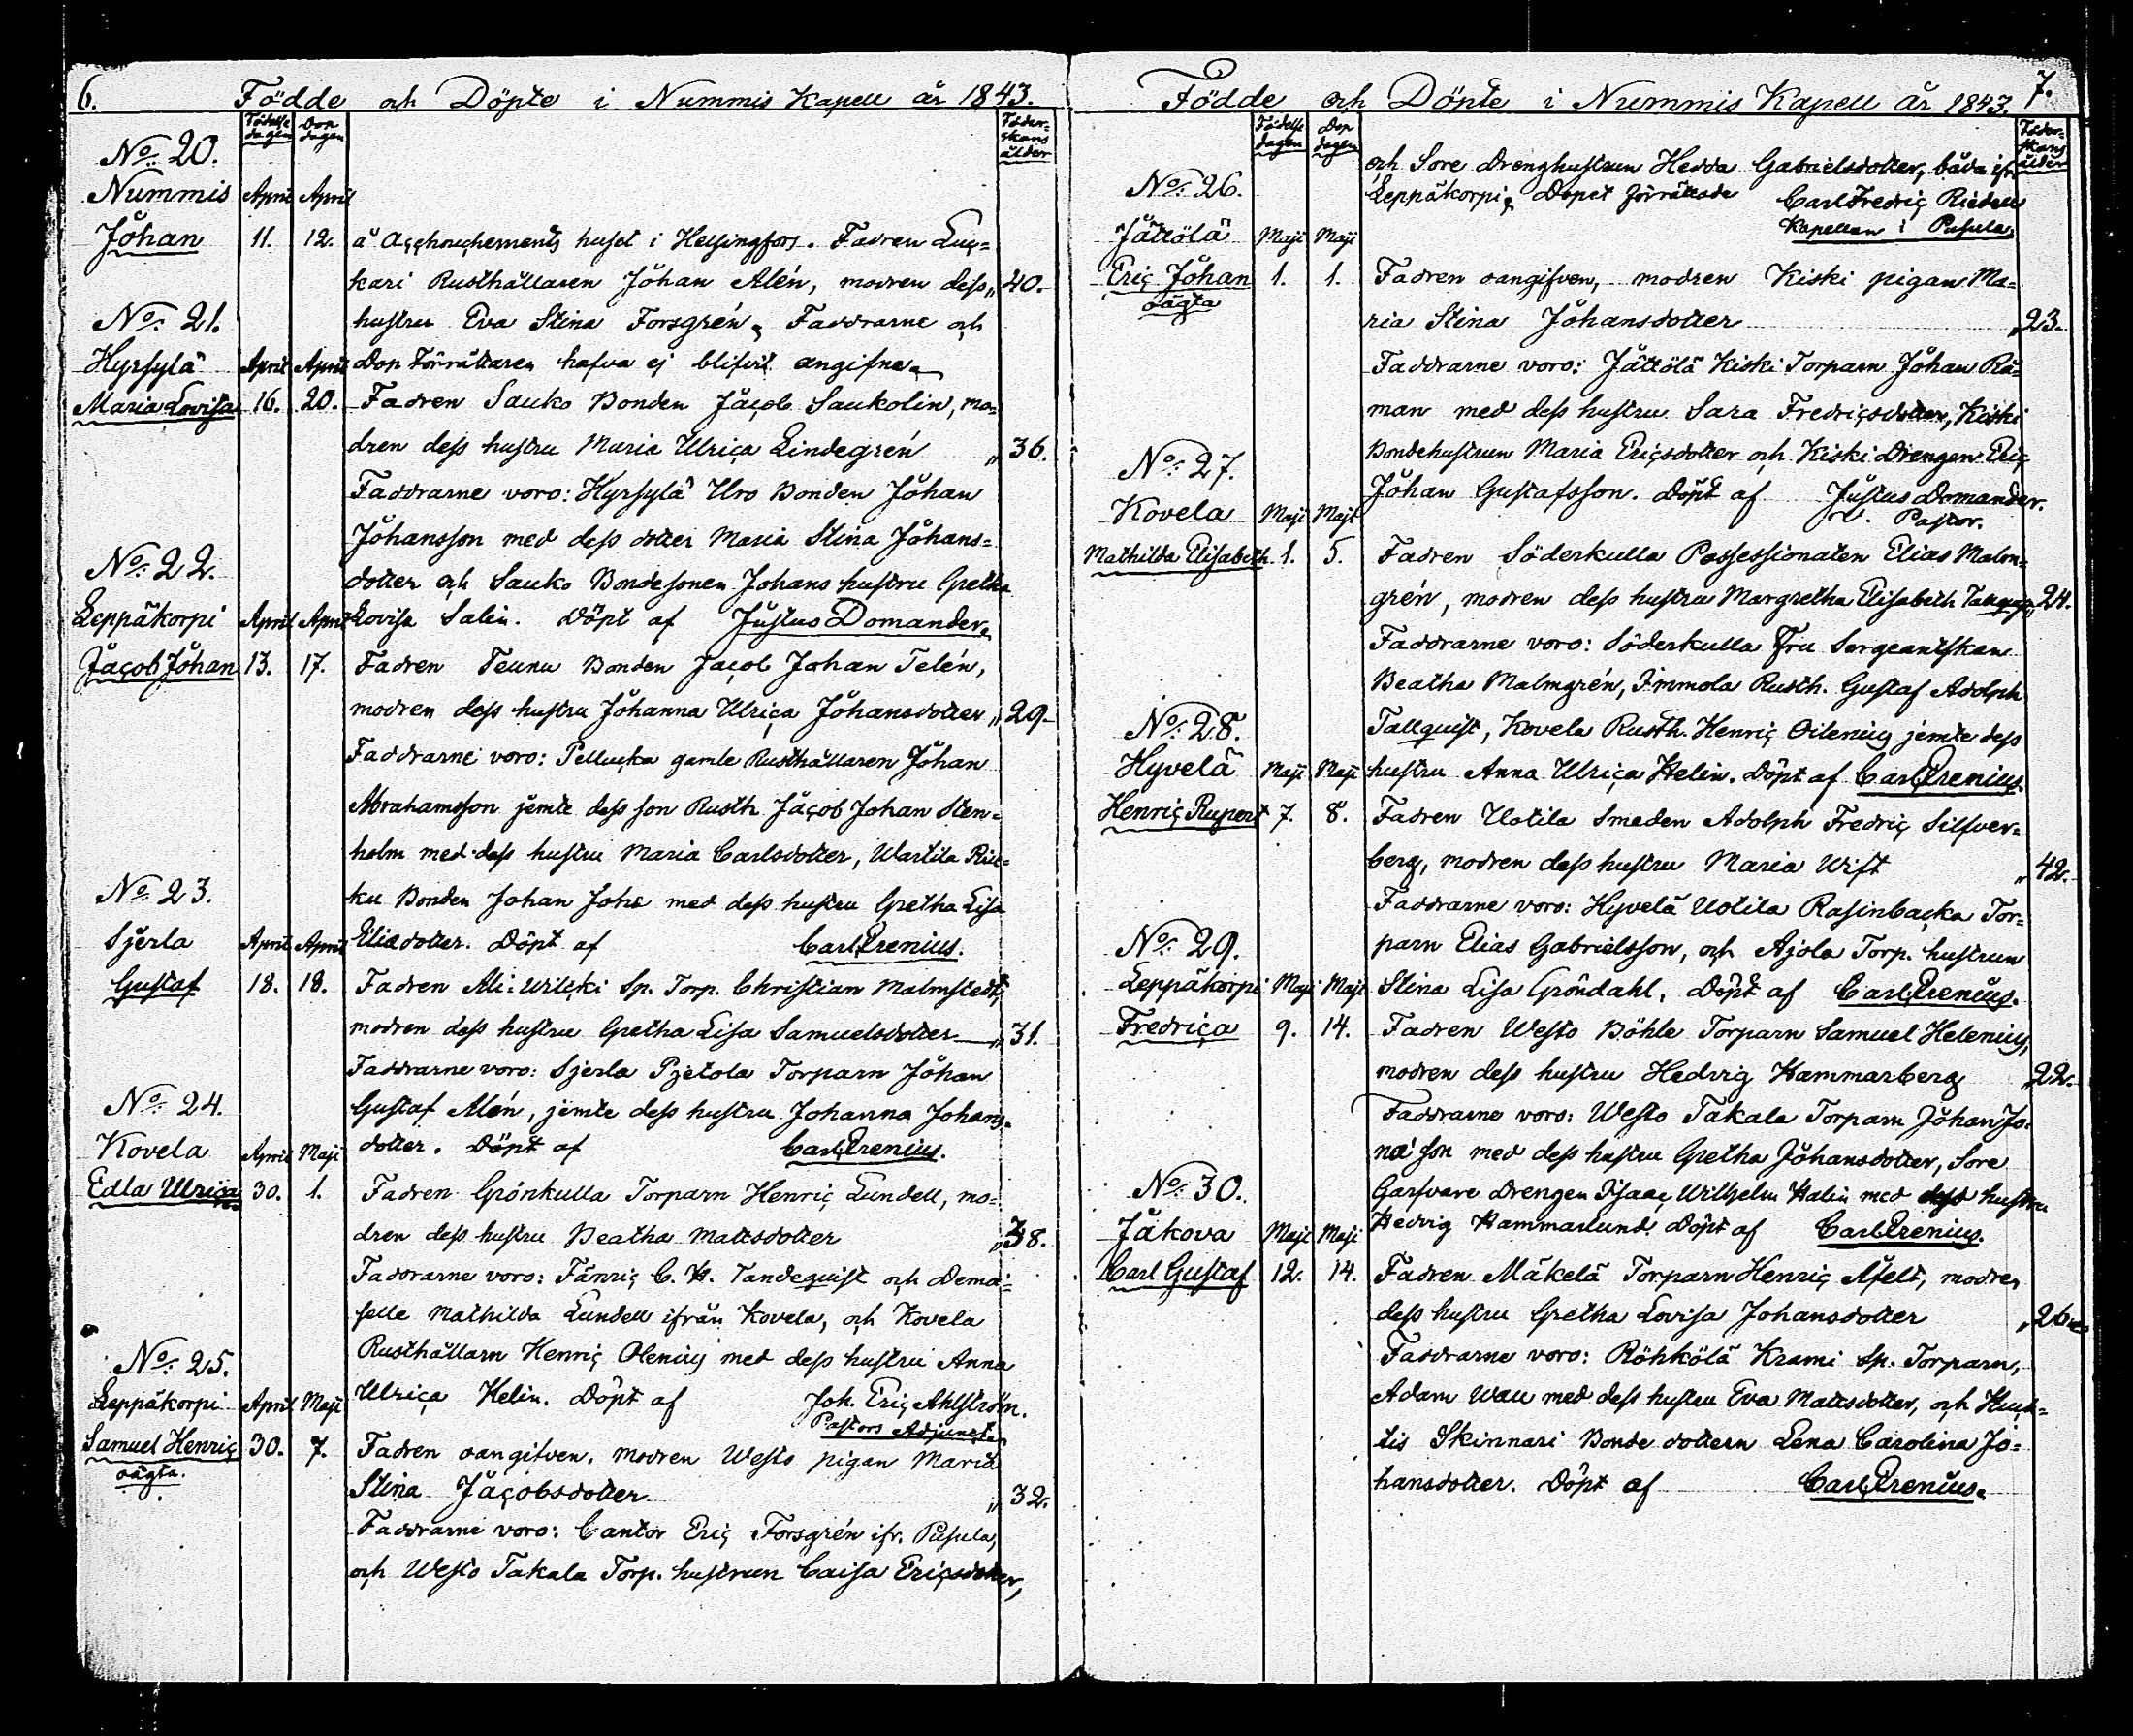 6.
Födde och Döpte i Nummis Kapell år 1843.
Födelse dagen
Dop dagen
Föder=
skans
ålder
No. 20.
Nummis April April
Johan 11. 12. å Accouchements huset i Helsingfors. Fadren Luc=
kari Rusthållaren Johan Alén, modren dess " 40.
No. 21. hustru Eva Stina Forsgrén. Faddrarne och
Hyrsylä April April Dop Förrättaren hafva ej blifvit angifne.
Maria Lovisa 16. 20. Fadren Sauko Bonden Jacob Saukolin, mo=
dren dess hustru Maria Ulrica Lindegrén " 36.
Faddrarne voro: Hyrsylä Uro Bonden Johan
Johansson med dess dotter Maria Stina Johans=
No. 22. dotter och Sauko Bondesonen Johans hustru Gretha
Leppäkorpi April April Lovisa Salin. Döpt af Justus Domander.
Jacob Johan 13. 17. Fadren Teunu Bonden Jacob Johan Telén,
modren dess hustru Johanna Ulrica Johansdotter " 29.
Faddrarne voro: Pellucka gamle Rusthållaren Johan
Abrahamsson jemte dess son Rusth. Jacob Johan Sten=
holm med dess hustru Maria Carlsdotter, Wartila
No. 23. ku Bonden Johan Johs med dess hustru Gretha Lisa
Sjerla April April Eliædotter. Döpt af Carl Prenius.
Gustaf 18. 18. Fadren Ali-Wilcki Sp. Torp. Christian Malmstedt,
modren dess hustru Gretha Lisa Samuelsdotter " 31.
Faddrarne voro: Sjerla Pjetola Torparn Johan
No. 24. Gustaf Alén, jemte dess hustru Johanna Johans=
Kovela April Maji dotter. Döpt af Carl Prenius.
Edla Ulrica 30. 1. Fadren Grönkulla Torparn Henric Lundell, mo=
dren dess hustru Beatha Mattsdotter " 38.
Faddrarne voro: Fänric C. H. Tandequist och Dema=
selle Mathilda Lundell ifrån Kovela, och Kovela
No. 25. Rusthållarn Henric Olenius med dess hustru Anna
Leppäkorpi April Maji Ulrica Helin. Döpt af Joh. Eric Ahlström.
Pastors Adjunct.
Samuel Henric 30. 7. Fadren oangifven, modren Westo pigan Maria
oägta. Stina Jacobsdotter " 32.
Faddrarne voro: Cantor Eric Forsgrén ifr. Pusula,
och Westo Takala Torp. hustrun Caisa Ericsdotter,
7.
Födde och Döpte i Nummis Kapell år 1843.
Födelse dagen
Dop dagen
Föder=
skans
ålder
och Sore Drenghustrun Hedda Gabrielsdotter, båda ifr.
No. 26. Leppäkorpi. Dopet förrättade Carl Fredric Riedell
Kapellan i Pusula.
Jättölä Maji Maji
Eric Johan 1. 1. Fadren oangifven, modren Kiski pigan Ma=
oägta ria Stina Johansdotter " 23.
Faddrarne voro: Jättölä Kiski Torparn Johan Rå=
man med dess hustru Sara Fredricsdotter, Kiski
No. 27. Bondehustrun Maria Ericsdotter och Kiski Drengen Eric
Johan Gustafsson. Döpt af Justus Domander.
v. Pastor.
Kovela Maji Maji
Mathilda Elisabeth 1. 5. Fadren Söderkulla Possessionaten Elias Malm=
grén, modren dess hustru Margretha Elisabeth " 24.
Faddrarne voro: Söderkulla Fru Sergeantskan
Beatha Malmgrén, Immola Rusth. Gustaf Adolph
No. 28. Tallquist, Kovela Rusth. Henric Oilenius jemte dess
Hyvelä Maji Maji hustru Anna Ulrica Helin. Döpt af Carl Prenius.
Henric Rupert 7. 8. Fadren Uotila Smeden Adolph Fredric Silfver=
berg, modren dess hustru Maria Wift " 42.
Faddrarne voro: Hyvelä Uotila Rasinbacka Tor=
No. 29. parn Elias Gabrielsson, och Ajola Torp. hustrun
Leppäkorpi Maji Maji Stina Lisa Gröndahl. Döpt af Carl Prenius.
Fredrica 9. 14. Fadren Westo Böhle Torparn Samuel Helenius,
modren dess hustru Hedvig Hammarberg " 22.
Faddrarne voro: Westo Takala Torparn Johan Jo=
næson med dess hustru Gretha Johansdotter, Sore
No. 30. Garfvare Drengen Isaac Wilhelm Halin med dess hustru
Jakova Maji Maji Hedvig Hammarlund. Döpt af Carl Prenius.
Carl Gustaf 12. 14. Fadren Mäkelä Torparn Henric Äfelt, modren
dess hustru Gretha Lovisa Johansdotter " 26
Faddrarne voro: Röhkölä Krami Sp. Torparn,
Adam Wall med dess hustru Eva Mattsdotter, och Huch=
tis Skinnari Bonde dottern Lena Carolina Jo=
hansdotter. Döpt af Carl Prenius.